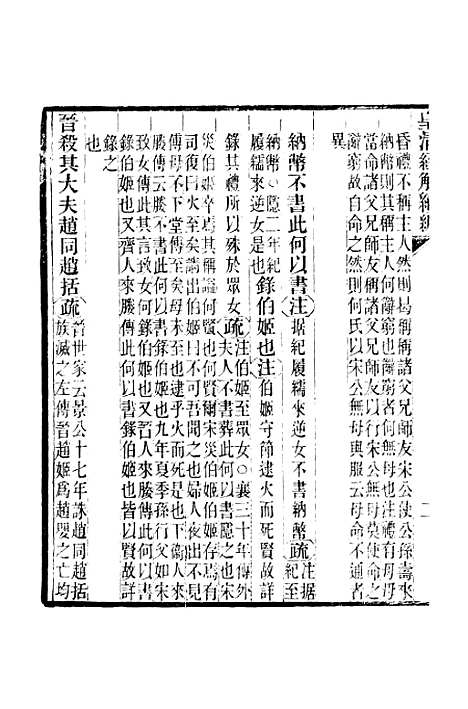 皇清經解續編
昏禮不稱主人然則曷稱稱諸父兄師友宋公使公孫壽來
納幣則何其稱主人何辭窮也辭窮者何無母也注禮有母母
當命諸父兄師友稱諸父兄師友以行宋公無母莫使命之
辭窮故自命之然則何氏以宋公無母與服云母命不通者
異
納幣不書此何以書注据紀履繻來逆女不書納幣疏注据
紀至
納幣○隱二年紀
履繻來逆女是也
錄伯姬也注伯姬守節逮火而死賢故詳
錄其禮所以殊於眾女疏注伯姬至眾女○襄三十年傳外
夫人不書葬此何以書隱之也宋
災伯姬卒焉其稱謚何賢也何賢爾宋災伯姬存焉有
司復曰火至矣請出伯姬曰不可吾聞之也婦人夜出不見
傅母不下堂傅至矣母未至也逮乎火而死是也下衞人來
媵傳云媵不書此何以書錄伯姬也九年夏季孫行父如宋
致女傳此其言致女何錄伯姬也又晉人來媵傳此何以書
錄伯姬也又齊人來媵傳此何以書錄伯姬也皆以賢故詳
錄之
也
晉殺其大夫趙同趙括疏晉世家云景公十七年誅趙同趙括
族滅之左傳晉趙姬爲趙嬰之亡均